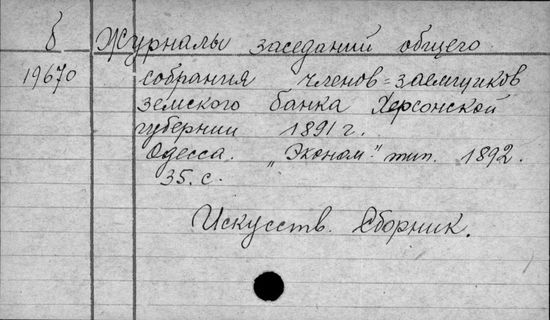 б Журналы заседаний общего
19670 собрания членов-заемщиков
земского банка Херсонской
губернии 1891 г.
Одесса. "Эконом." тип. 1892.
35. с.
Искусств. Сборник.